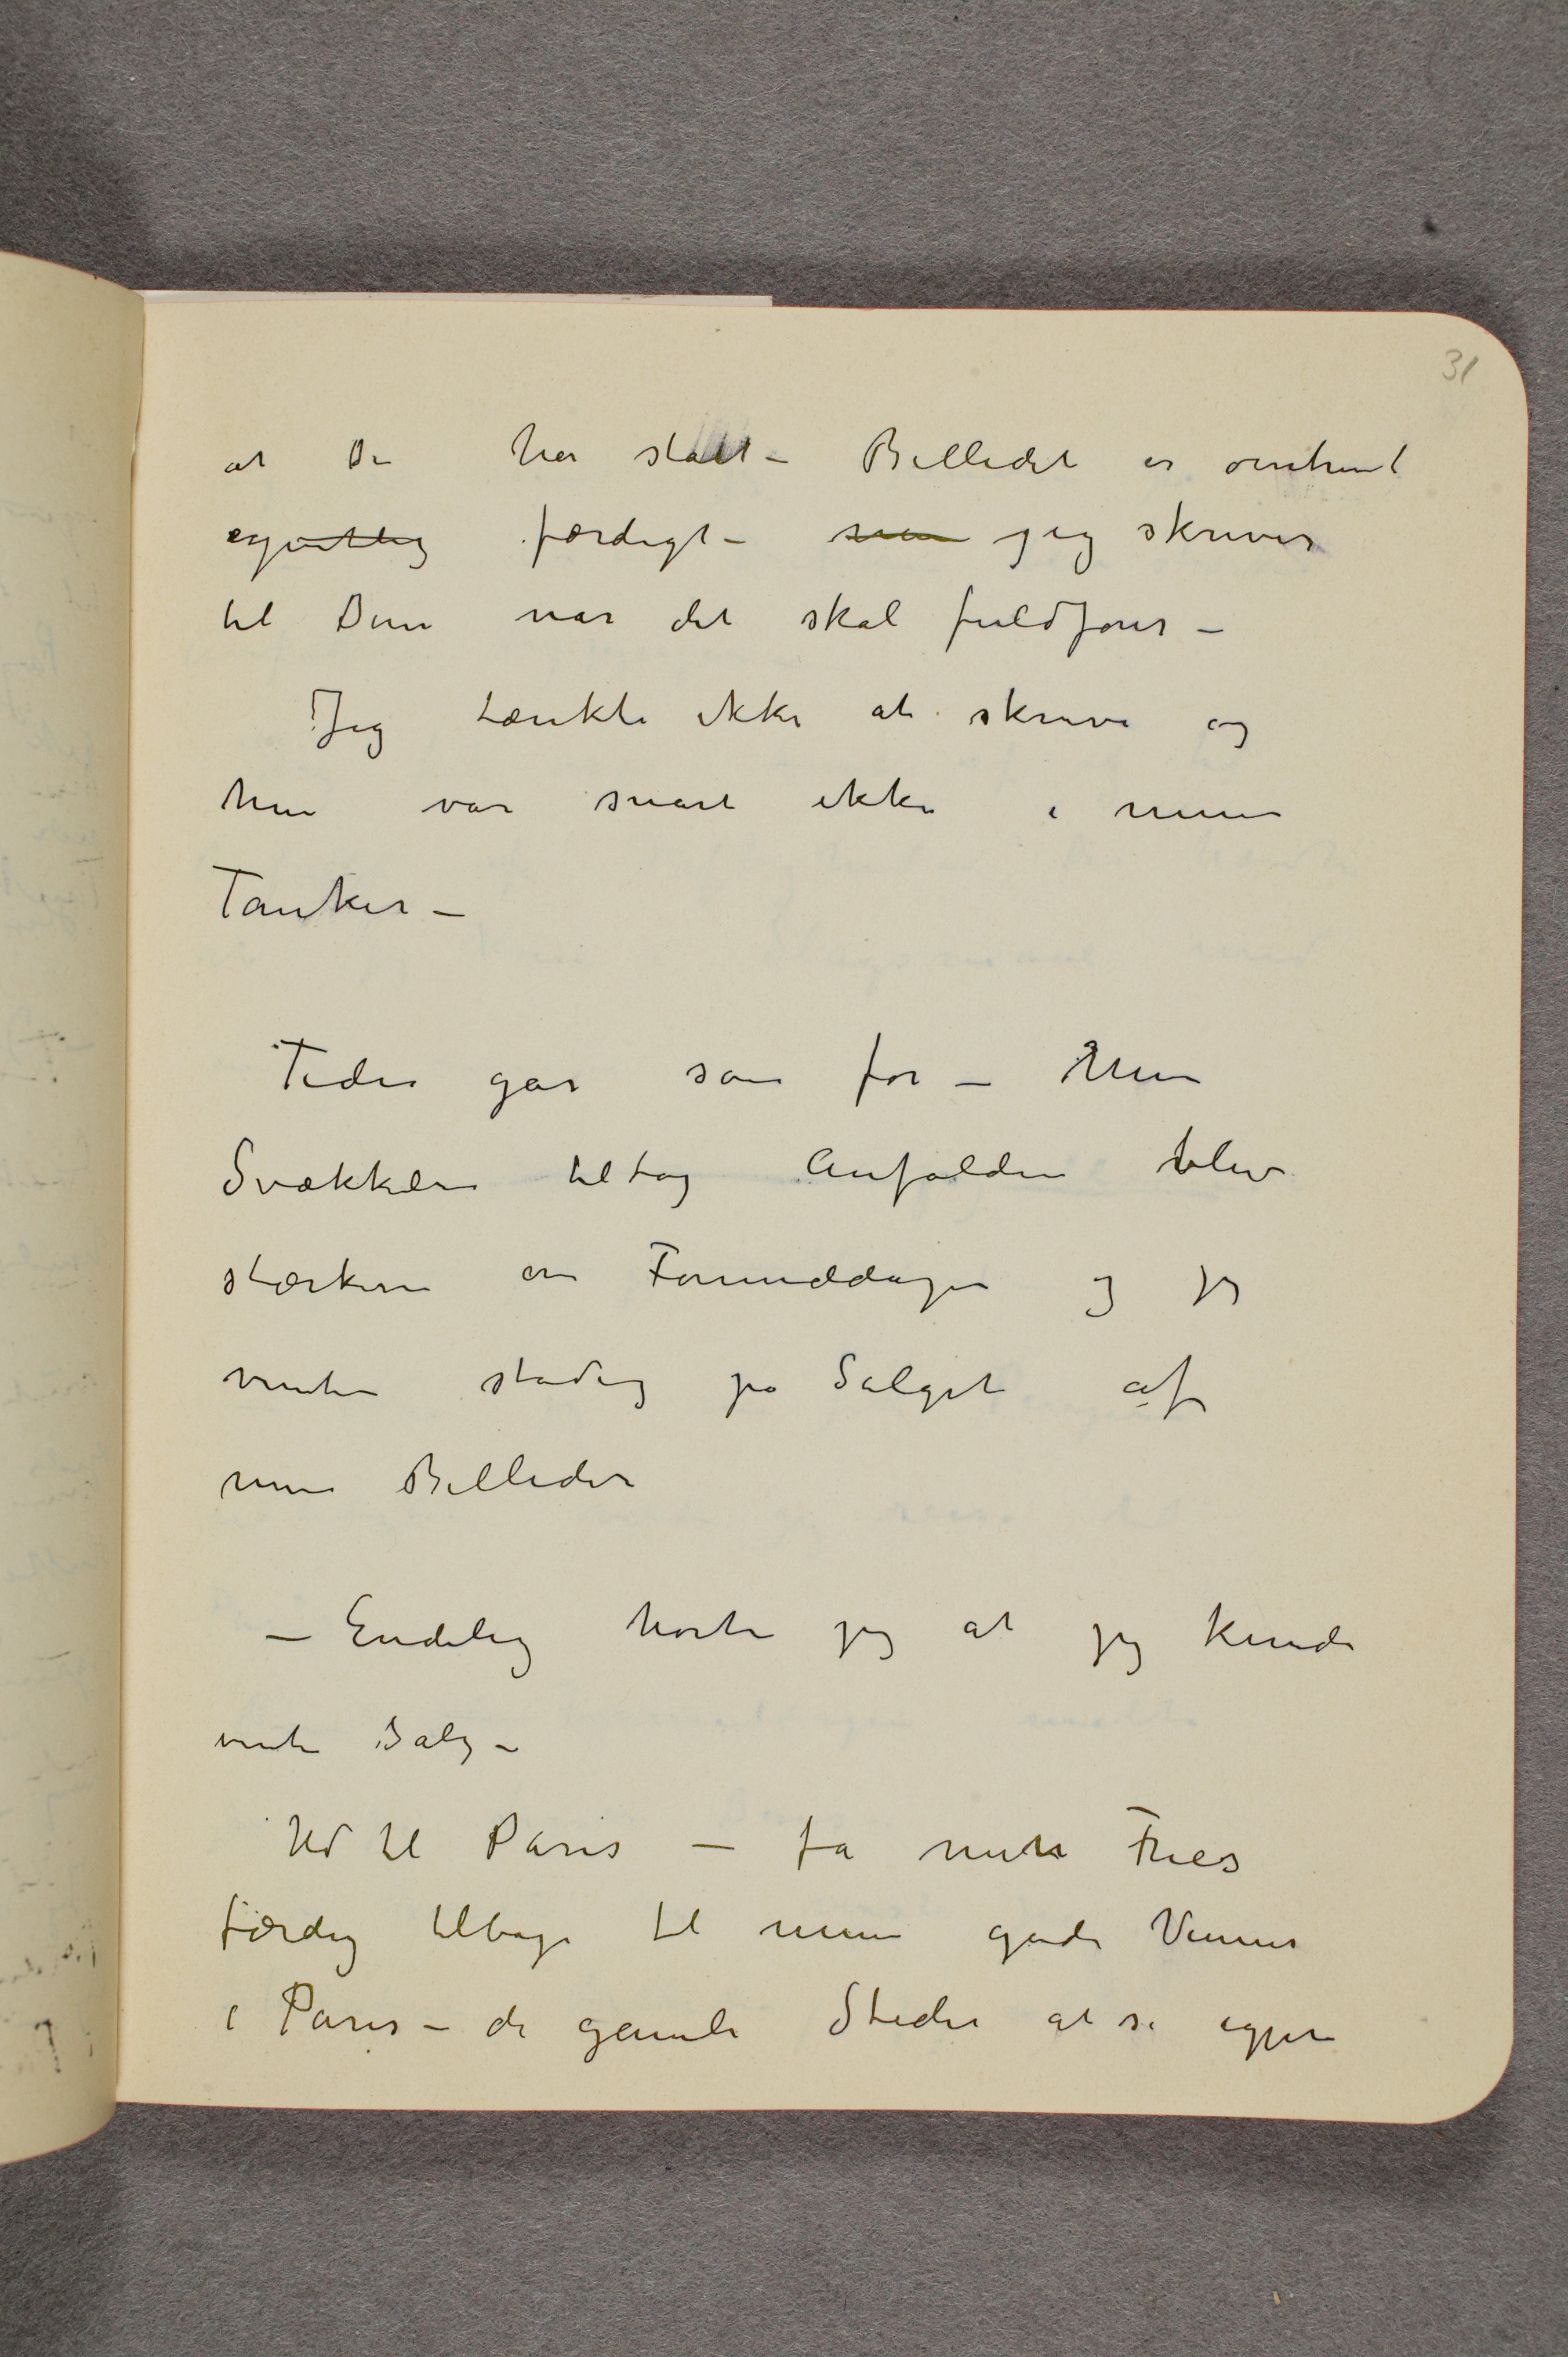 31
at De har stått – Billedet er omtrent
egentlig færdigt – men jeg skriver
til Dem når det skal fuldføres –
Jeg tænkte ikke at skrive og
hun var snart ikke i mine
Tanker –
Tiden går som før – Min
Svækkelse tiltog Anfaldene blev
stærkere om Formiddagen og jeg
venter stadig på Salget af
mine Billeder
– Endelig hørte jeg at jeg kunde
vente Salg –
Ud til Paris – få min Fries
færdig tilbage til mine gode Venner
i Paris – de gamle Steder at se igjen